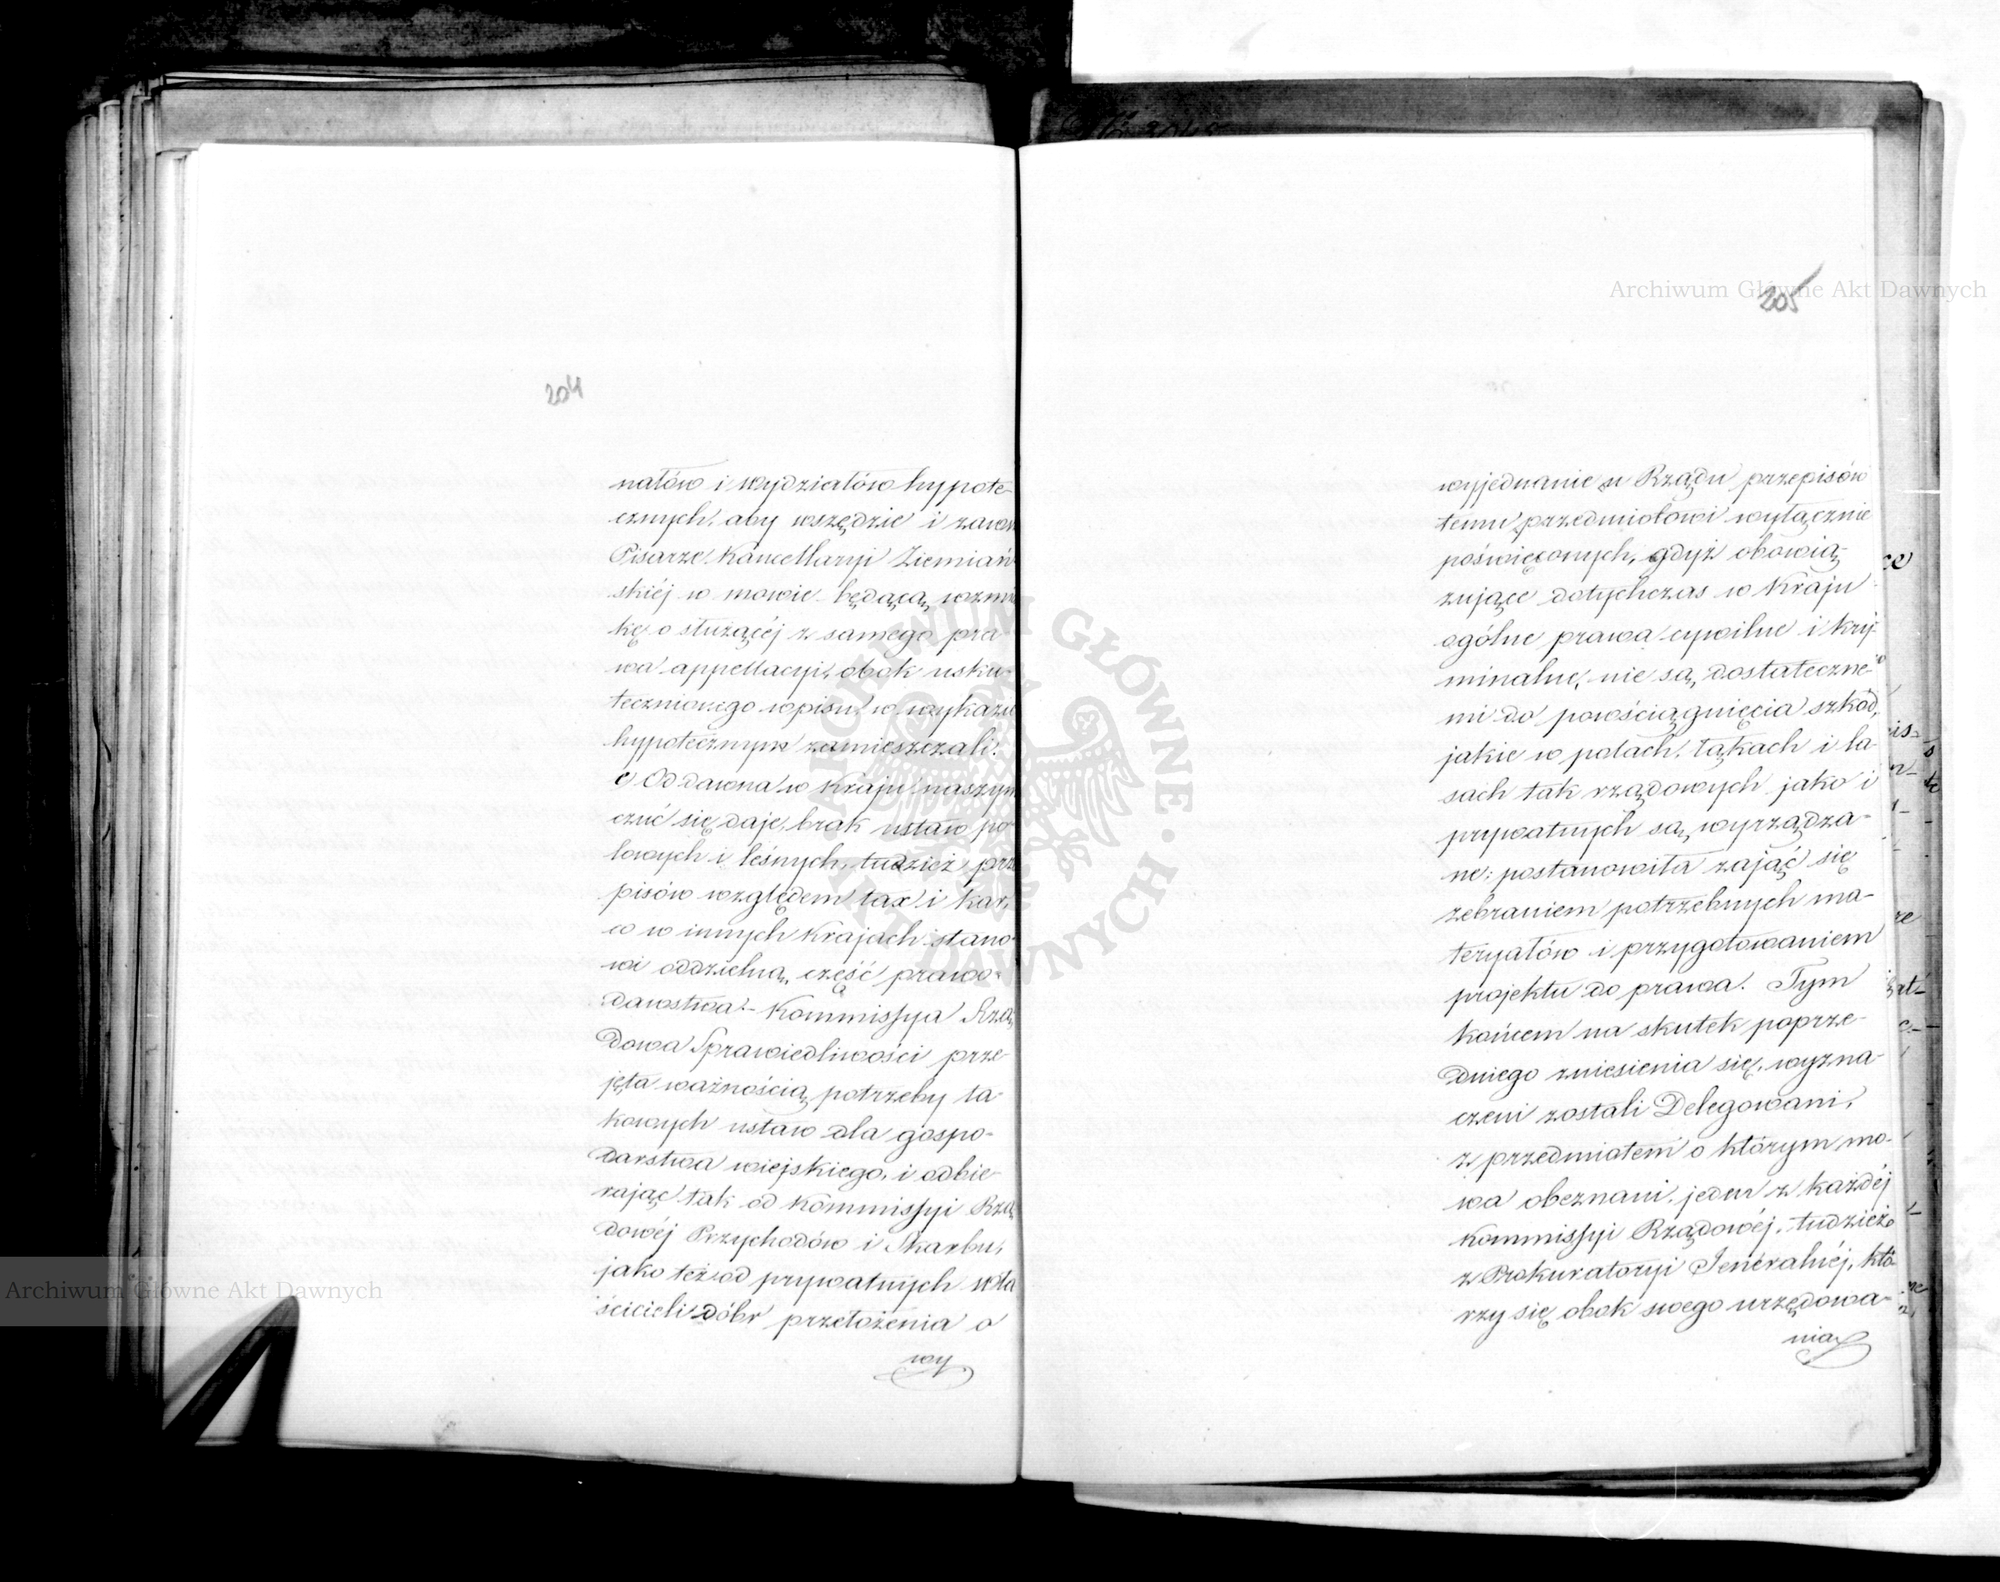 204
natów i wydziałów hypote-
cznych, aby wszędzie i zawsze
Pisarze Kancellaryi Ziemiań-
skiéj w mowie będącą, wzmian
kę o służącéj z samego pra-
wa appellacyi, obok usku-
tecznionego wpisu w wykazie
hypotecznym zamieszczali.
e) Oddawna w Kraju naszym
czuć się daje, brak ustaw po-
lowych i leśnych, tudzież prze
pisów względem tax i kar,
co w innych krajach stano-
wi oddzielną część prawo-
dawstwa.- Kommissya Rzą
dowa Sprawiedliwości prze-
jęta ważnością potrzeby ta-
kowych ustaw dla gospo-
darstwa wiejskiego, i odbie-
rając tak od Kommissyi Rzą
dowéj Przychodów i Skarbu,
jako też od prywatnych wła
ścicieli dóbr przełożenia o
wy
205
wyjednanie u Rządu przepisów
temu przedmiotowi wyłącznie
poświęconych, gdyż obowią-
zujące dotychczas w Kraju
ogólne prawa cywilne i kry-
minalne, nie są dostateczne-
mi do powściągnięcia szkód,
jakie w polach, łąkach i la-
sach tak rządowych jako i
prywatnych są wyrządza-
ne; postanowiła zająć się
zebraniem potrzebnych ma-
teryałów i przygotowaniem
projektu do prawa. Tym
końcem na skutek poprze-
dniego zniesienia się, wyzna-
czeni zostali Delegowani,
z przedmiotem o którym mo-
wa obeznani, jeden z każdéj
Kommissyi Rządowéj, tudzież
z Prokuratoryi Jeneralnéj, któ-
rzy się obok swego urzędowa-
nia
Archiwum Główne Akt Dawnych
Archiwum Główne Akt Dawnych
ARCHIWUM GŁÓWNE AKT DAWNYCH